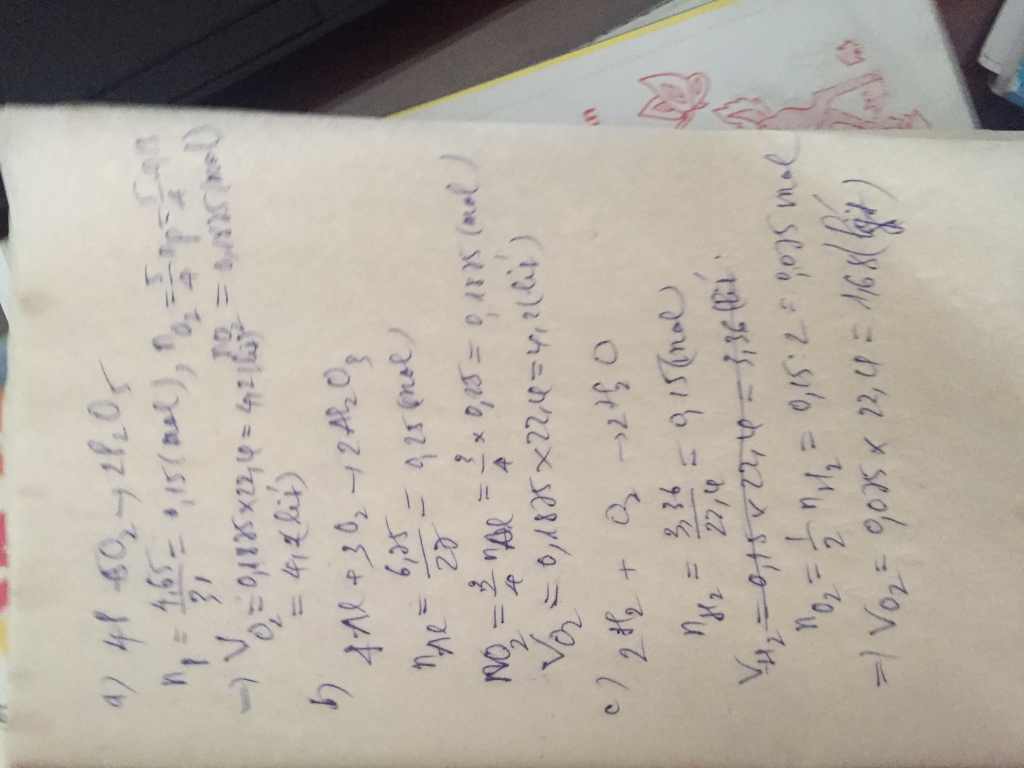 a) 4P + 5O2 → 2P2O5
nP = 4,65/31 = 0,15 (mol), nO2 = 5/4 nP = 5/4 . 0,15
= 0,1875 (mol)
=) VO2 = 0,1875 x 22,4 = 4,2 (lít)
= 4,2 (lít)
b)
4Al + 3O2 → 2Al2O3
nAl = 6,75/27 = 0,25 (mol)
NO2 = 3/4 nAl = 3/4 x 0,25 = 0,1875 (mol)
VO2 = 0,1875 x 22,4 = 4,2 (lít)
c) 2H2 + O2 → 2H2O
nH2 = 3,36/22,4 = 0,15 (mol)
VH2 = 0,15 x 22,4 = 3,36 lít.
nO2 = 1/2 nH2 = 0,15 : 2 = 0,075 mol
=) VO2 = 0,075 x 22,4 = 1,68 (lít)